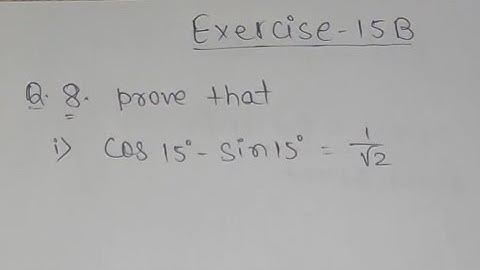 Exercise-15B
Q. 8. prove that
i) cos 15° - sin 15° = 1/√2